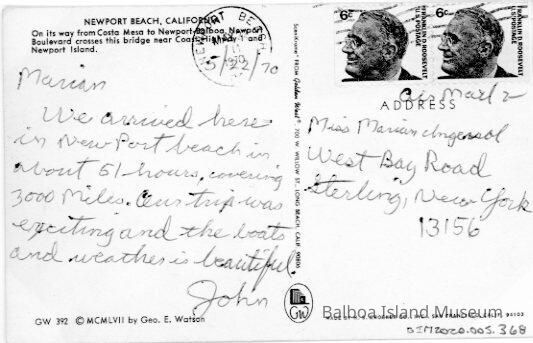 NEWPORT BEACH, CALIFORNIA
On its way from Costa Mesa to Newport-Balboa, Newport
Boulevard crosses this bridge near Coast Highway 1 and
Newport Island.
NEWPORT BEACH
5/29/70
Marian
We arrived here
in NewPort beach in
about 51 hours, covering
3000 Miles. Our trip was
exciting and the boats
and weather is beautiful.
John
GW 392 © MCMLVII by Geo. E. Watson
FROM Golden West® 700 W. WILLOW ST., LONG BEACH, CALIF. 90806
GW
6¢ FRANKLIN D ROOSEVELT U.S. POSTAGE
6¢ FRANKLIN D ROOSEVELT U.S. POSTAGE
Air Mail
ADDRESS
Miss Marian Ingersol
West Bay Road
Sterling, New York
13156
Balboa Island Museum
94103
BIM2020.005.368